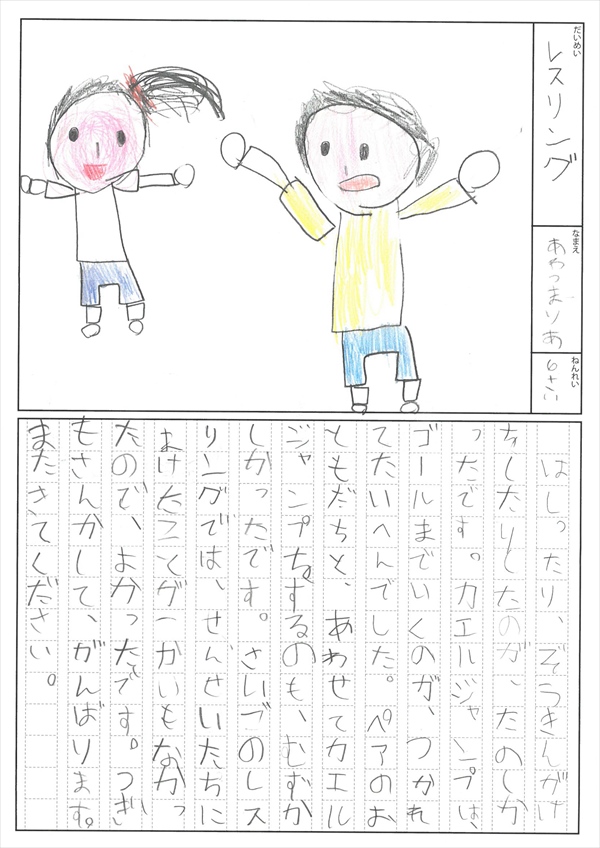 だいめい
レスリング
なまえ
あわつまりあ
ねんれい
6さい
はしったり、ぞうきんがけ
をしたりしたのが、たのしか
ったです。カエルジャンプは、
ゴールまでいくのが、つかれ
てたいへんでした。ペアのお
ともだちと、あわせてカエル
ジャンプをするのも、むずか
しかったです。さいごのレス
リングでは、せんせいたちに
まけたことが一かいもなかっ
たので、よかったです。つぎ
もさんかして、がんばります。
またきてください。